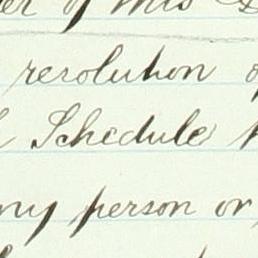 of this
resolution
Schedule
ny person or